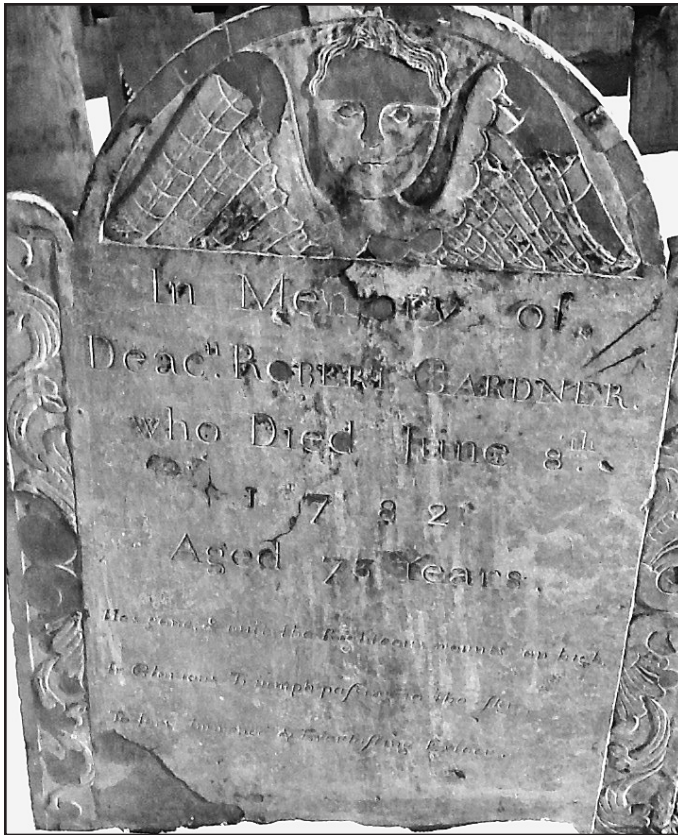 In Memory of
Deacⁿ. ROBERT GARDNER.
who Died June 8th.
1782.
Aged 75 Years.
gone, & the Righteous on high
In Glorious Triumph to the
&